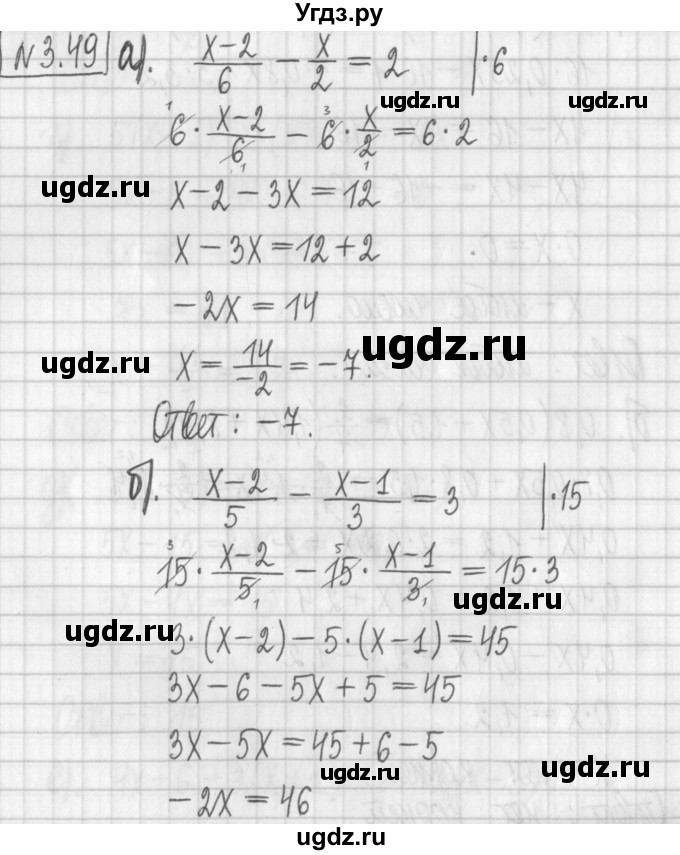 Угдз.ру
№3.49 а). (x-2)/6 - x/2 = 2 | ·6
ugdz.ru ugdz.ru
6 · (x-2)/6 - 6 · x/2 = 6·2
ugdz.ru ugdz.ru
x-2-3x=12
x-3x=12+2
-2x=14
ugdz.ru x = 14/-2 = -7. ugdz.ru
Ответ: -7.
б). (x-2)/5 - (x-1)/3 = 3 | ·15
15 · (x-2)/5 - 15 · (x-1)/3 = 15·3
ugdz.ru
ugdz.ru 3·(x-2)-5·(x-1)=45
3x-6-5x+5=45
3x-5x=45+6-5
ugdz.ru ugdz.ru
-2x=46
ugdz.ru